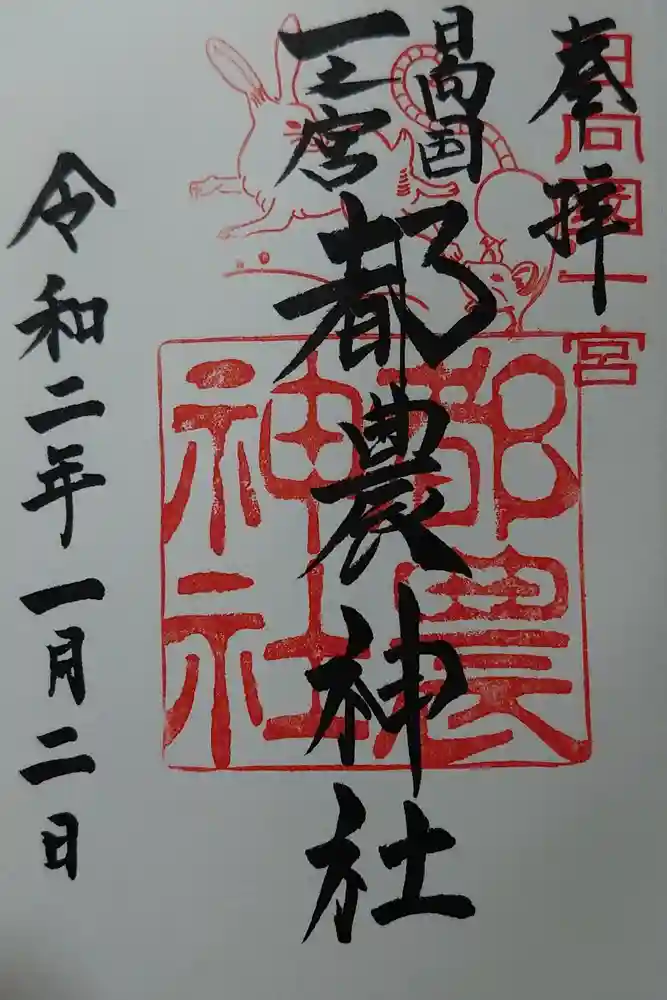 奉拝
日向國一宮
日向国
一之宮
都農神社
都農
神社
令和二年一月二日